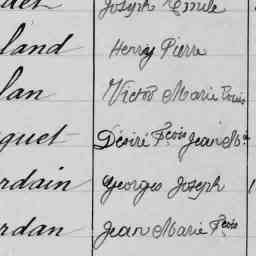 Joseph Emile
land Henry Pierre
lan Victor Marie Louis
quet Désiré Fçois Jean Ma
rdain Georges Joseph
rdan Jean Marie Fçois